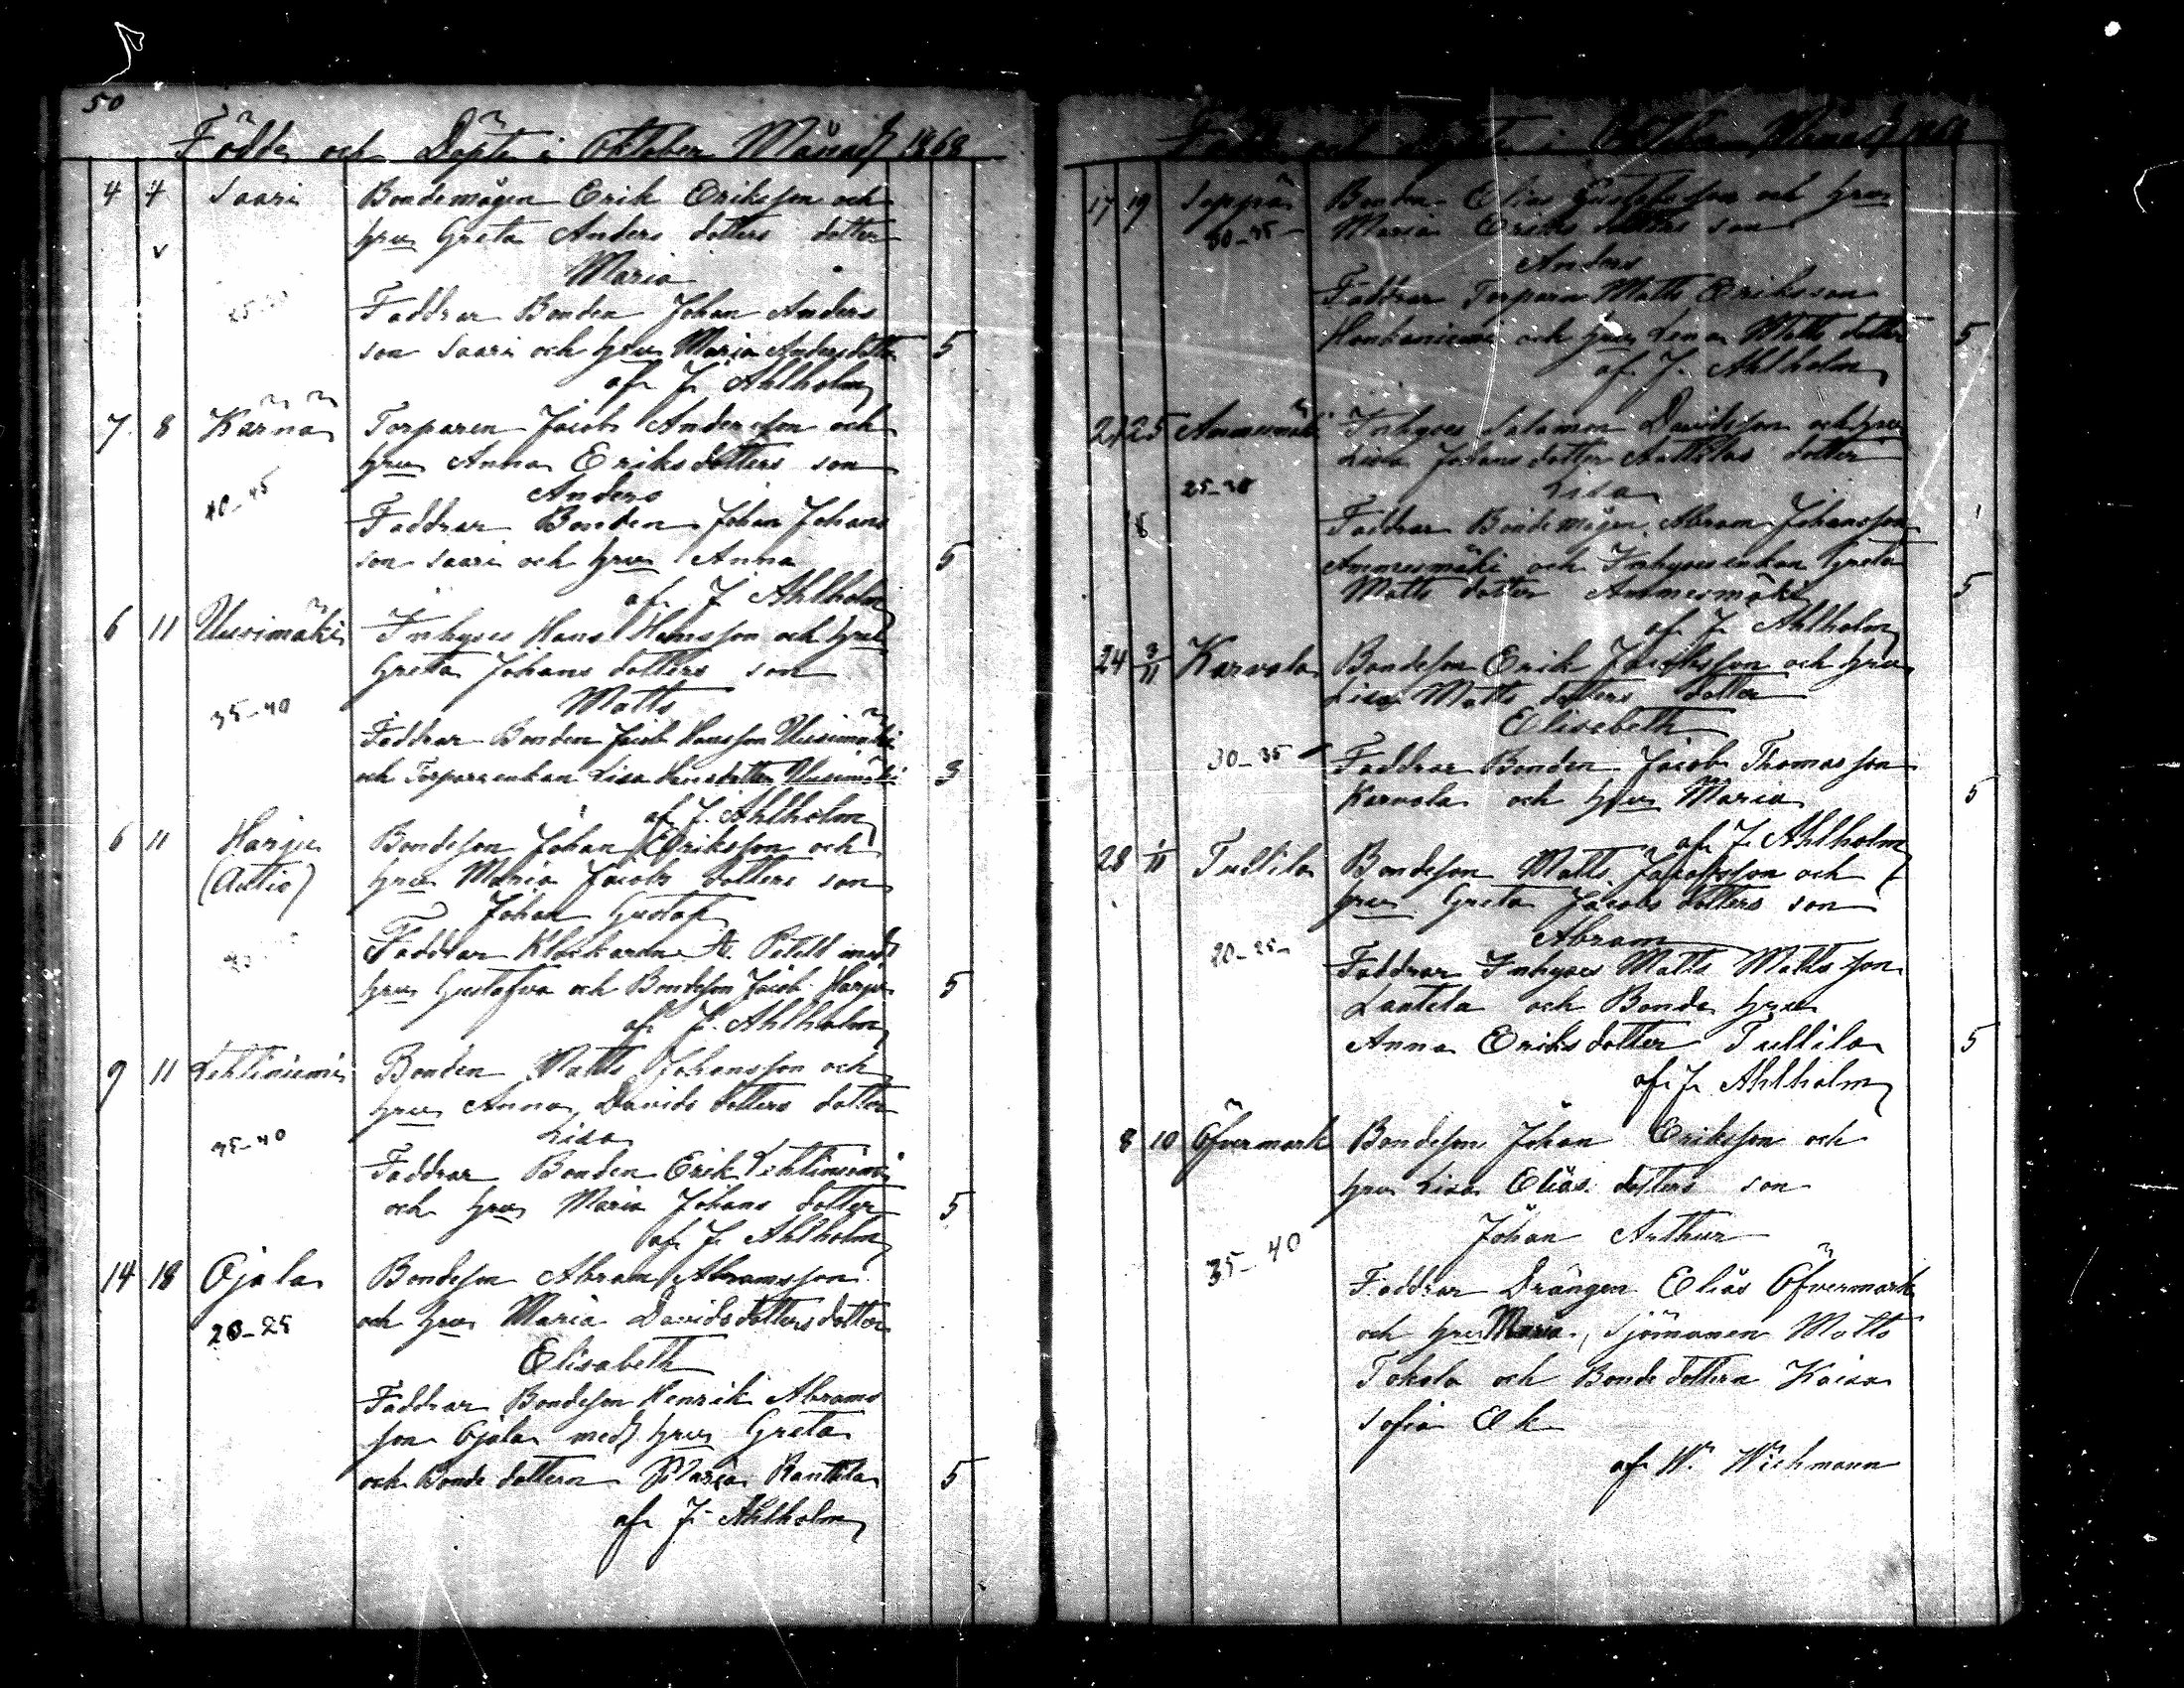 50
Födde och Döpte i Oktober Månad 1868
4 4 Saari Bondemågen Erik Eriksson och
hru Greta Anders dotters dotter
Maria
25-30 Faddrar Bonden Johan Anders
son Saari och hru Maria Andersdotter 5
af J. Ahlholm
7 8 Kärnä Torparen Jacob Andersson och
hru Anna Eriks dotters son
Anders
40-45 Faddrar Bonden Johan Johans
son Saari och hru Anna 5
af J. Ahlholm
6 11 Uusimäki Inhyses Hans Hansson och hru
Greta Johans dotters son
Matts
35-40 Faddrar Bonden Jacob Hansson Uusimäki
och Torpareenkan Lisa Hansdotter Uusimäki 3
af J. Ahlholm
6 11 Harju Bondeson Johan Eriksson och
(Autio) hru Maria Jacobs dotters son
Johan Gustaf
Faddrar Klockaren A. Petell med
hru Gustafva och Bondeson Jacob Harju 5
af J. Ahlholm
9 11 Lehtiniemi Bonden Matts Johansson och
hru Anna Davids dotters dotter
35-40 Lisa
Faddrar Bonden Erik Lehtiniemi
och hru Maria Johans dotter 5
af J. Ahlholm
14 18 Ojala Bondeson Abram Abramsson
20-25 och hru Maria Davidsdotters dotter
Elisabeth
Faddrar Bondeson Henrik Abrams
son Ojala med hru Greta
och Bonde dottern Maria Rantala 5
af J. Ahlholm
Födde och döpte i Oktober Månad 1868
17 19 Seppä Bonden Elias Gustafsson och hru
30-35 Maria Eriks dotters son
Anders
Faddrar Torparn Matts Eriksson
Honkaniemi och hru Lena Matts dotter 5
af J. Ahlholm
25 Ammesmäki Inhyses Salamon Davidsson och hru
Lisa Johans dotter dotter
25-30 Lisa
Faddrar Bondemågen Abram Johansson
Ammesmäki och Inhysesenkan Greta
Matts dotter Ammesmäki 5
af J. Ahlholm
24 3/11 Karvola Bondeson Erik Jacobsson och hru
Lisa Matts dotters dotter
Elisabeth
30-35 Faddrar Bonden Jacob Thomasson
Karvola och hru Maria 5
af J. Ahlholm
28 1/11 Tullila Bondeson Matts Jacobsson och
hru Greta Jacobs dotters son
20-25 Abram
Faddrar Inhyses Matts Mattsson
Lantela och Bonde hru
Anna Eriks dotter Tullila 5
af J. Ahlholm
8 10 Öfvermark Bondeson Johan Eriksson och
hru Lisa Elias dotters son
35-40 Johan Arthur
Faddrar Drängen Elias Öfvermark
och hru Maria, Sjömannen Matts
Tokola och Bonde dottern Kaisa
Sofia Ek
af W. Wichmann